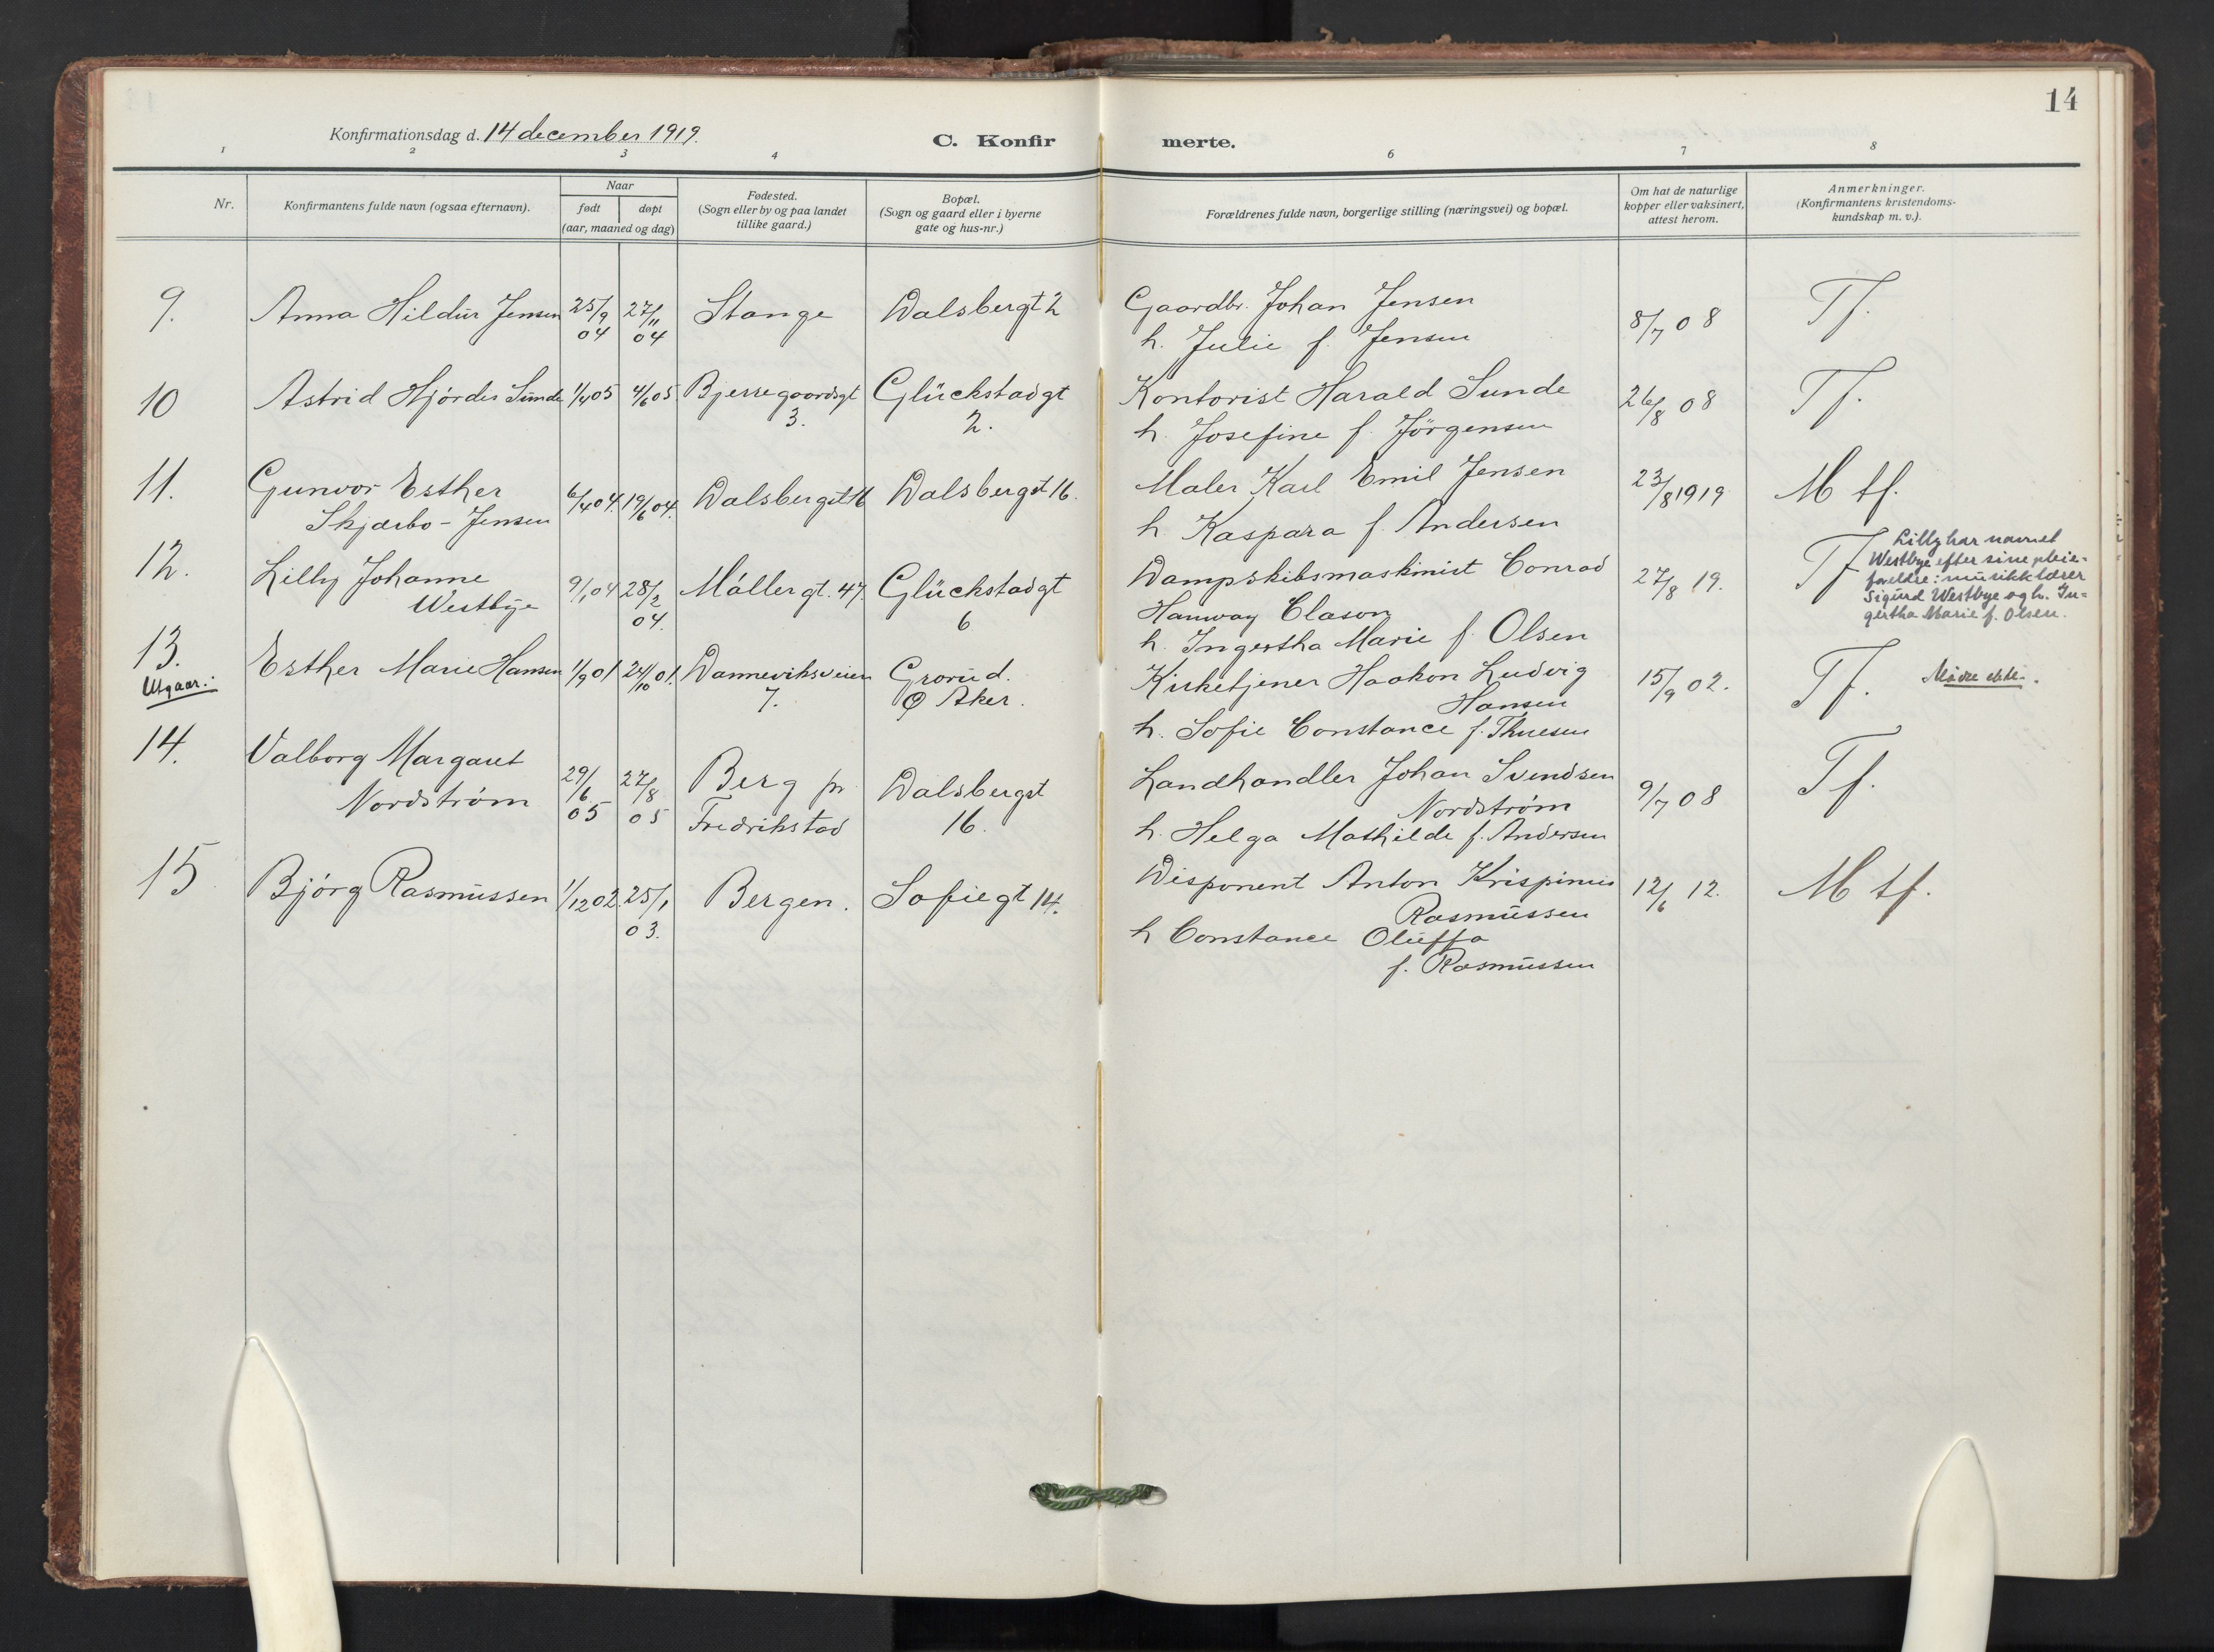 14
Konfirmationsdag d. 14 december 1919.
C. Konfirmerte.
1 2 3 4 6 7 8
Nr.
Konfirmantens fulde navn (ogsaa efternavn).
Naar
født døpt
(aar, maaned og dag)
Fødested.
(Sogn eller by og paa landet
tillike gaard.)
Bopæl.
(Sogn og gaard eller i byerne
gate og hus-nr.)
Forældrenes fulde navn, borgerlige stilling (næringsvei) og bopæl.
Om hat de naturlige
kopper eller vaksinert,
attest herom.
Anmerkninger.
(Konfirmantens kristendoms-
kundskap m. v.).
9.
Anna Hildur Jensen
25/9
04
27/11
04
Stange
Dalsbergt 2
Gaardbr. Johan Jensen
h. Julie f. Jensen
8/7 08
Tf.
10
Astrid Hjørdis Sunde
1/4 05
4/6 05
Bjerregaardsgt
3.
Glückstadgt
2.
Kontorist Harald Sunde
h. Josefine f. Jörgensen
26/8 08
Tf.
11.
Gunvor Esther
Skjærbo-Jensen
6/4 04.
19/6 04.
Dalsbergst 16
Dalsbergst 16.
Maler Karl Emil Jensen
h Kaspara f. Andersen
23/8 1919
M tf.
12.
Lilly Johanne
Westbye
9/1 04
28/2
04.
Möller gt. 47.
Glückstadgt
6
Dampskibsmaskinist Conrad
Hanway Clason
h. Ingertha Marie f. Olsen
27/8 19.
Tf
Lilly har navnet
Westbye efter sine pleie-
foreldre: musikklærer
Sigurd Westbye og h. In-
gertha Marie f. Olsen.
13.
Utgaar.:
Esther Marie Hansen
1/9 01
24/10 01.
Danneviksveien
7.
Grorud.
Ø Aker.
Kirketjener Haakon Ludvig
Hansen
h. Sofie Constance f. Thuesen
15/9 02.
Tf.
14.
Valborg Margaret
Nordström
29/6
05
27/8
05
Berg pr
Fredrikstad
Dalsbergst
16.
Landhandler Johan Svendsen
Nordström
h. Helga Mathilde f. Andersen
9/7 08
Tf.
15
Bjørg Rasmussen
1/12 02.
25/1
03.
Bergen.
Sofiegt 14.
Disponent Anton Krispinus
Rasmussen
h Constance Oluffa
f. Rasmussen
12/6 12.
M tf.